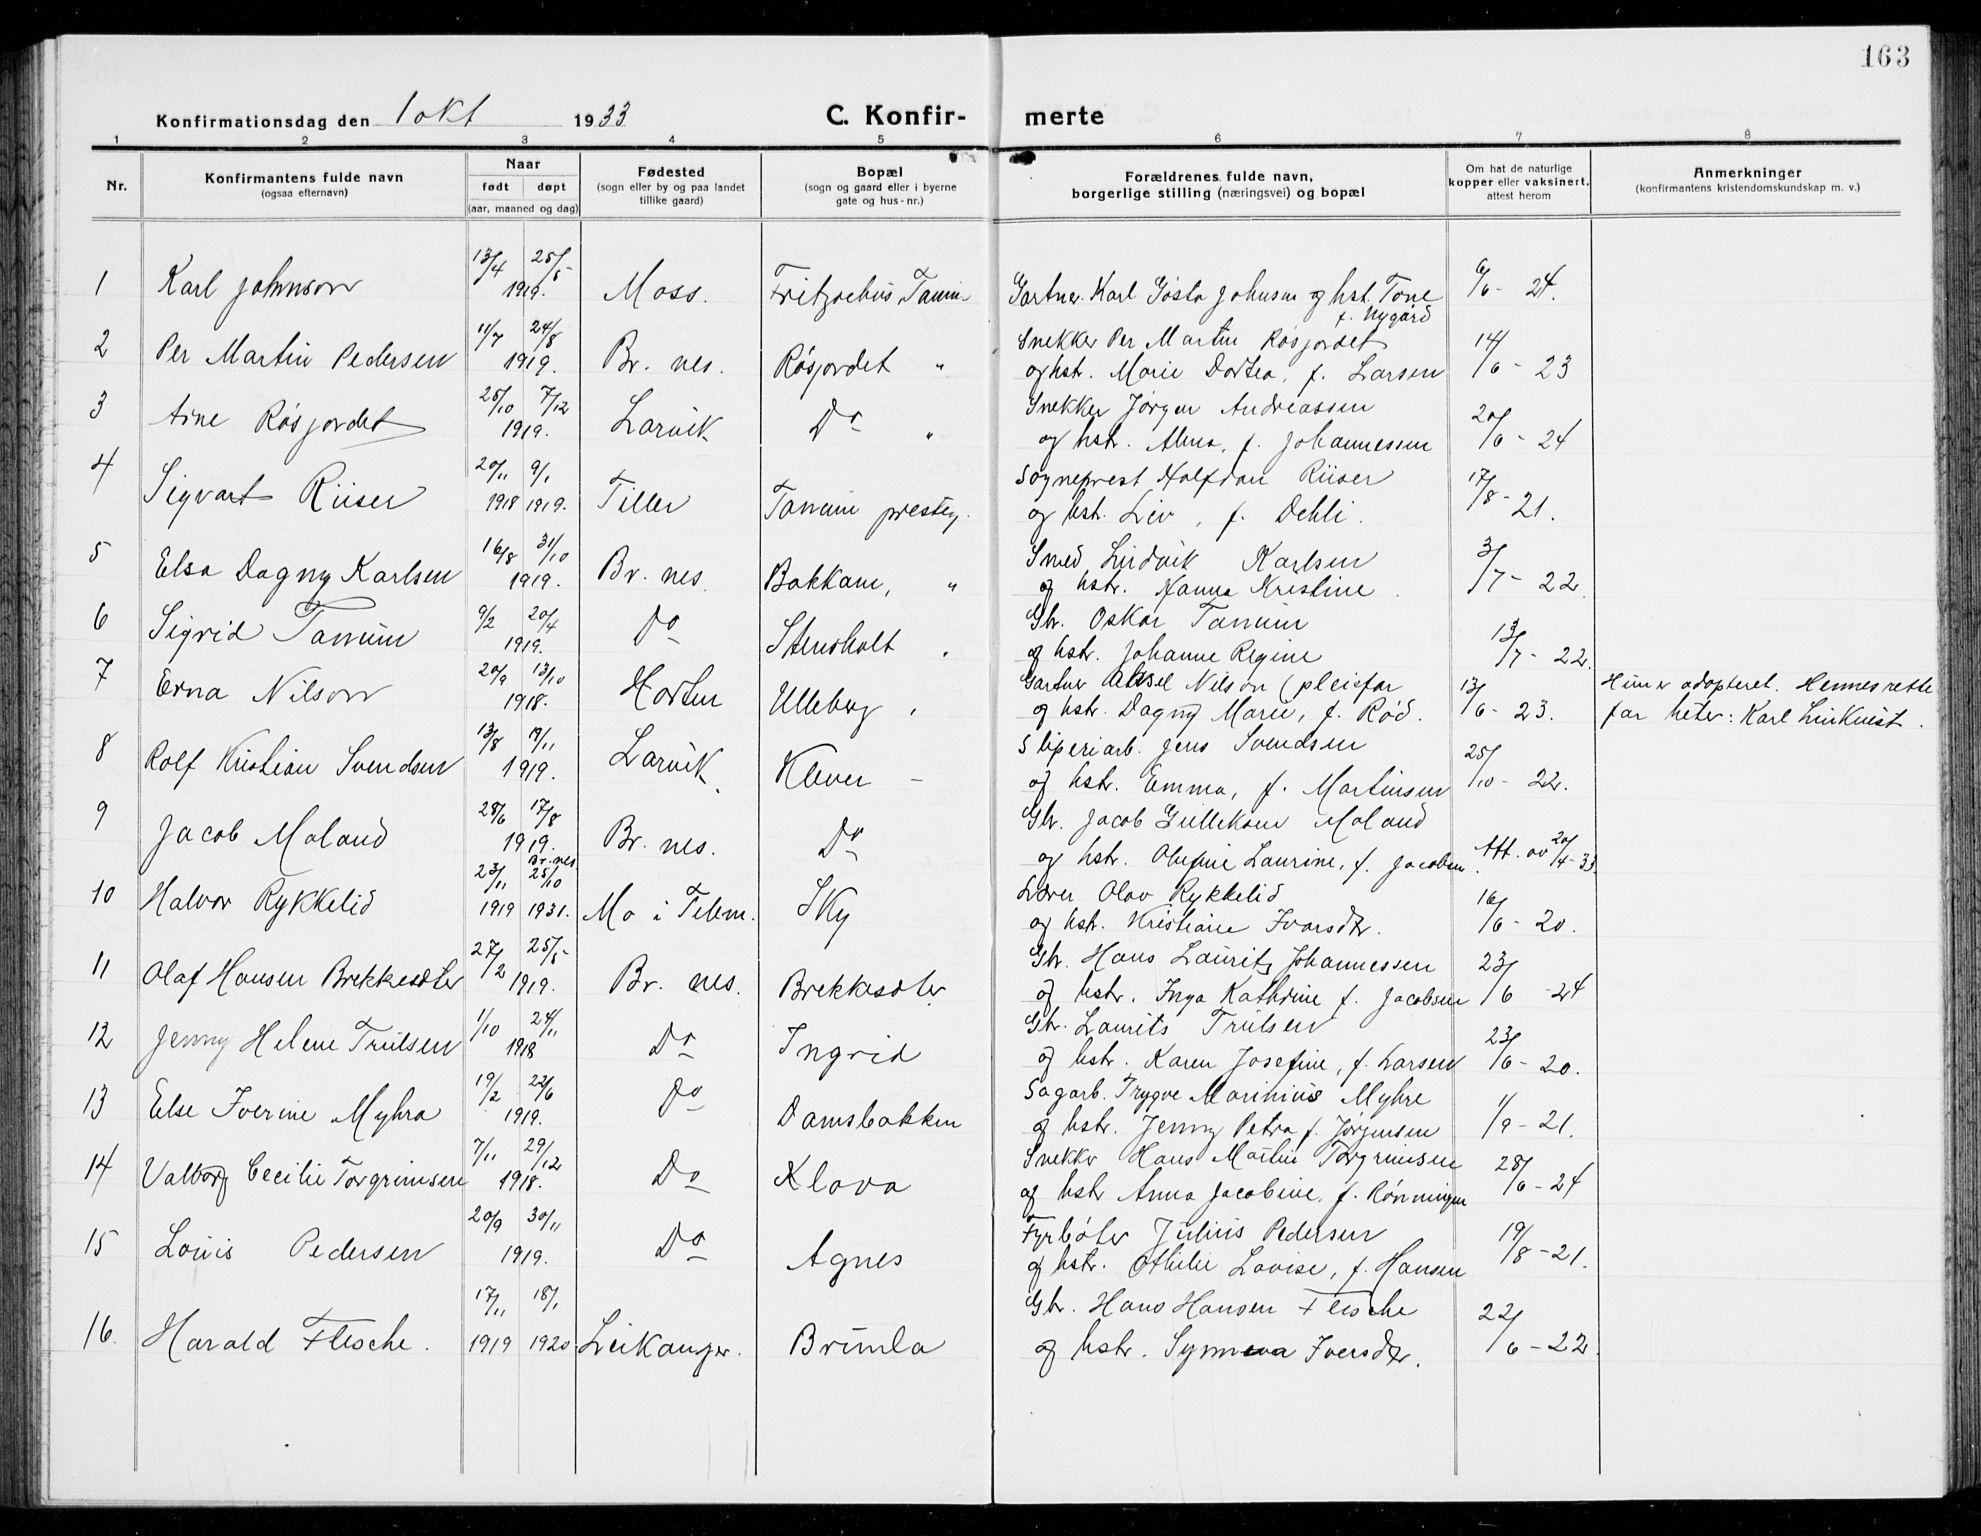 163
Konfirmationsdag den 1 okt 1933 C. Konfir- merte
1 2 3 4 5 6 7 8
Nr. Konfirmantens fulde navn (ogsaa efternavn) Naar født døpt (aar, maaned og dag) Fødested (sogn eller by og paa landet tillike gaard) Bopæl (sogn og gaard eller i byerne gate og hus-nr.) Forældrenes fulde navn, borgerlige stilling (næringsvei) og bopæl Om hat de naturlige kopper eller vaksinert, attest herom Anmerkninger (konfirmantens kristendomskundskap m. v.)
1 Karl Johnson 13/4 25/5 1919. Moss. Fritzøehus Tanum Gartner Karl Gösta Johnson og hst. Tone f. Nygård 6/6 - 24.
2 Per Martin Pedersen 11/7 24/8 1919. Br. nes. Røsjordet " Snekker Per Martin Røsjordet
og hstr. Marie Dortea, f. Larsen 14/6 - 23
3 Arne Røsjordet 25/10 7/12 1919. Larvik Do " Snekker Jørgen Andreassen
og hstr. Alma, f. Johannessen 20/6 - 24
4 Sigvart Riiser 20/11 1918 9/1 1919. Tiller Tanum presteg. Sogneprest Halfdan Riiser
og hst. Liv, f. Dehli. 17/8 - 21.
5 Elsa Dagny Karlsen 16/8 31/10 1919. Br. nes. Bakkane, " Smed Ludvik Karlsen
og hstr. Hanna Kristine. 3/7 - 22
6 Sigrid Tanum 9/2 20/4 1919. Do Stensholt " Gbr. Oskar Tanum
og hstr. Johanne Regine 13/7 - 22.
7 Erna Nilson 20/9 13/10 1918. Horten Ulleberg " Gartner Aksel Nilson (pleiefar
og hstr. Dagny Marie, f. Rød. 13/6 - 23. Hun er adopteret. Hennes rette
far heter: Karl Linkvist.
8 Rolf Kristian Svendsen 13/8 19/11 1919. Larvik. Klever - Sliperiarb. Jens Svendsen
og hstr. Emma, f. Martinsen 25/10 - 22.
9 Jacob Moland 28/6 17/8 1919. Br. nes. Do Gbr. Jacob Gullekson Moland
og hstr. Olufine Laurine, f. Jacobsen. Att. av 20/4 - 33.
10 Halvor Rykkelid 23/11 1919 Br. nes. 25/10 1931. Mo i Telem. Sky Lærer Olav Rykkelid
og hstr. Kristiane Ivarsdtr. 16/6 - 20.
11 Olaf Hansen Brekkesæter 27/2 25/5 1919. Br. nes. Brekkesæter Gbr. Hans Lauritz Johannessen
og hstr. Inga Kathrine f. Jacobsen 23/6 - 24
12 Jenny Helene Trulsen 1/10 24/11 1918 Do Ingrid Gbr. Laurits Trulsen
og hstr. Karen Josefine, f. Larsen 23/6 - 20.
13 Else Iverine Myhra 19/2 22/6 1919. Do Damsbakken Sagarb. Trygve Marinius Myhre
og hstr. Jenny Petra f. Jørgensen 1/9 - 21.
14 Valborg Cecilie Torgrimsen 7/11 29/12 1918. Do Klova Snekker Hans Martin Torgrimsen
og hstr Anna Jacobine, f. Rønningen 28/6 - 24
15 Louis Pedersen 20/9 30/11 1919. Do Agnes Fyrbøter Julius Pedersen
og hstr. Othilie Lovise, f. Hansen 19/8 - 21.
16. Harald Flesche. 17/11 1919 18/1 1920. Leikanger. Brunla Gbr. Hans Hansen Flesche
og hstr. Synneva Iversdtr. 22/6 - 22.